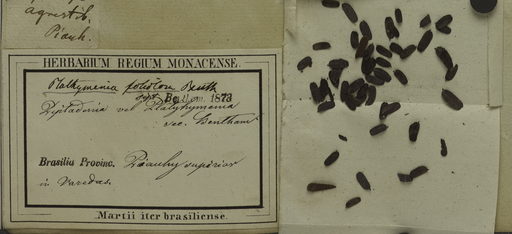 agrestib.
Piauh.
HERBARIUM REGIUM MONACENSE.
Plathymenia foliolosa Benth
Bentham. 1873
vel Platyhymenia
sec. Bentham
Brasilia Provinc. Piauhy superior
in Varedas.
Martii iter brasiliense.